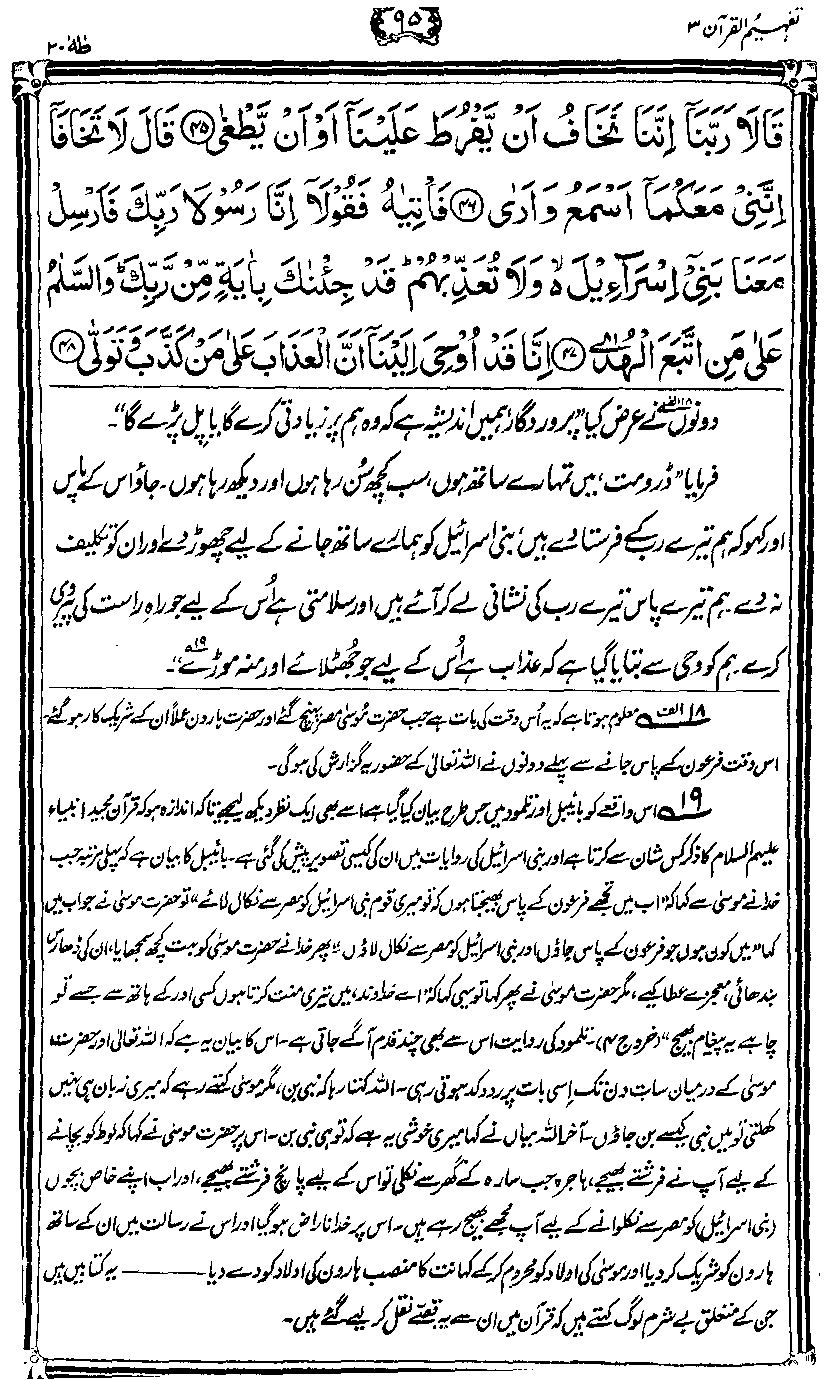 تفہیم القرآن ۳
۹۵
طٰہٰ ۲۰
قَالَا رَبَّنَآ اِنَّنَا نَخَافُ اَنْ يَّفْرُطَ عَلَيْنَآ اَوْ اَنْ يَّطْغٰى ﴿۴۵﴾ قَالَ لَا تَخَافَآ
اِنَّنِيْ مَعَكُمَآ اَسْمَعُ وَاَرٰى ﴿۴۶﴾ فَاْتِيٰهُ فَقُوْلَآ اِنَّا رَسُوْلَا رَبِّكَ فَاَرْسِلْ
مَعَنَا بَنِيْٓ اِسْرَآءِيْلَ ۙ وَلَا تُعَذِّبْهُمْ ؕ قَدْ جِئْنٰكَ بِاٰيَةٍ مِّنْ رَّبِّكَ ؕ وَالسَّلٰمُ
عَلٰى مَنِ اتَّبَعَ الْهُدٰى ﴿۴۷﴾ اِنَّا قَدْ اُوْحِيَ اِلَيْنَآ اَنَّ الْعَذَابَ عَلٰى مَنْ كَذَّبَ وَتَوَلّٰى ﴿۴۸﴾
دونوں ۱۸الف نے عرض کیا ”پروردگار، ہمیں اندیشہ ہے کہ وہ ہم پر زیادتی کرے گا یا پل پڑے گا“۔
فرمایا ”ڈرو مت، میں تمہارے ساتھ ہوں، سب کچھ سُن رہا ہوں اور دیکھ رہا ہوں۔ جاؤ اس کے پاس
اور کہو کہ ہم تیرے رب کے فرستادے ہیں، بنی اسرائیل کو ہمارے ساتھ جانے کے لیے چھوڑ دے اور ان کو تکلیف
نہ دے۔ ہم تیرے پاس تیرے رب کی نشانی لے کر آئے ہیں اور سلامتی ہے اُس کے لیے جو راہِ راست کی پیروی
کرے۔ ہم کو وحی سے بتایا گیا ہے کہ عذاب ہے اُس کے لیے جو جُھٹلائے اور منہ موڑے ۱۹“۔
۱۸ الف معلوم ہوتا ہے کہ یہ اُس وقت کی بات ہے جب حضرت مُوسیٰ مصر پہنچ گئے اور حضرت ہارون عملاً ان کے شریک کار ہو گئے۔
اس وقت فرعون کے پاس جانے سے پہلے دونوں نے اللہ تعالیٰ کے حضور یہ گزارش کی ہو گی۔
۱۹ اس واقعے کو بائیبل اور تلمود میں جس طرح بیان کیا گیا ہے اسے بھی ایک نظر دیکھ لیجیے تاکہ اندازہ ہو کہ قرآن مجید انبیاء
علیہم السلام کا ذکر کس شان سے کرتا ہے اور بنی اسرائیل کی روایات میں ان کی کیسی تصویر پیش کی گئی ہے۔ بائیبل کا بیان ہے کہ پہلی مرتبہ جب
خدا نے موسیٰ سے کہا کہ ”اب میں تجھے فرعون کے پاس بھیجتا ہوں کہ تو میری قوم بنی اسرائیل کو مصر سے نکال لائے“ تو حضرت موسیٰ نے جواب میں
کہا ”میں کون ہوں جو فرعون کے پاس جاؤں اور بنی اسرائیل کو مصر سے نکال لاؤں“۔ پھر خدا نے حضرت موسیٰ کو بہت کچھ سمجھایا، ان کی ڈھارس
بندھائی، معجزے عطا کیے، مگر حضرت موسیٰ نے پھر کہا تو یہی کہا کہ ”اے خداوند، میں تیری منت کرتا ہوں کسی اور کے ہاتھ سے جسے تو
چاہے یہ پیغام بھیج“ (خروج ۴)۔ تلمود کی روایت اس سے بھی چند قدم آگے جاتی ہے۔ اس کا بیان یہ ہے کہ اللہ تعالیٰ اور حضرت
موسیٰ کے درمیان سات دن تک اِسی بات پر ردوکد ہوتی رہی۔ اللہ کہتا رہا کہ نبی بن، مگر موسیٰ کہتے رہے کہ میری زبان ہی نہیں
کھلتی تو میں نبی کیسے بن جاؤں۔ آخر اللہ میاں نے کہا میری خوشی یہ ہے کہ تو ہی نبی بن۔ اس پر حضرت موسیٰ نے کہا کہ لوط کو بچانے
کے لیے آپ نے فرشتے بھیجے، ہاجرہ جب سارہ کے گھر سے نکلی تو اس کے لیے پانچ فرشتے بھیجے، اور اب اپنے خاص بچوں
(بنی اسرائیل) کو مصر سے نکلوانے کے لیے آپ مجھے بھیج رہے ہیں۔ اس پر خدا ناراض ہو گیا اور اس نے رسالت میں ان کے ساتھ
ہارون کو شریک کر دیا اور موسیٰ کی اولاد کو محروم کر کے کہانت کا منصب ہارون کی اولاد کو دے دیا ——— یہ کتابیں ہیں
جن کے متعلق بے شرم لوگ کہتے ہیں کہ قرآن میں ان سے یہ قصّے نقل کر لیے گئے ہیں۔